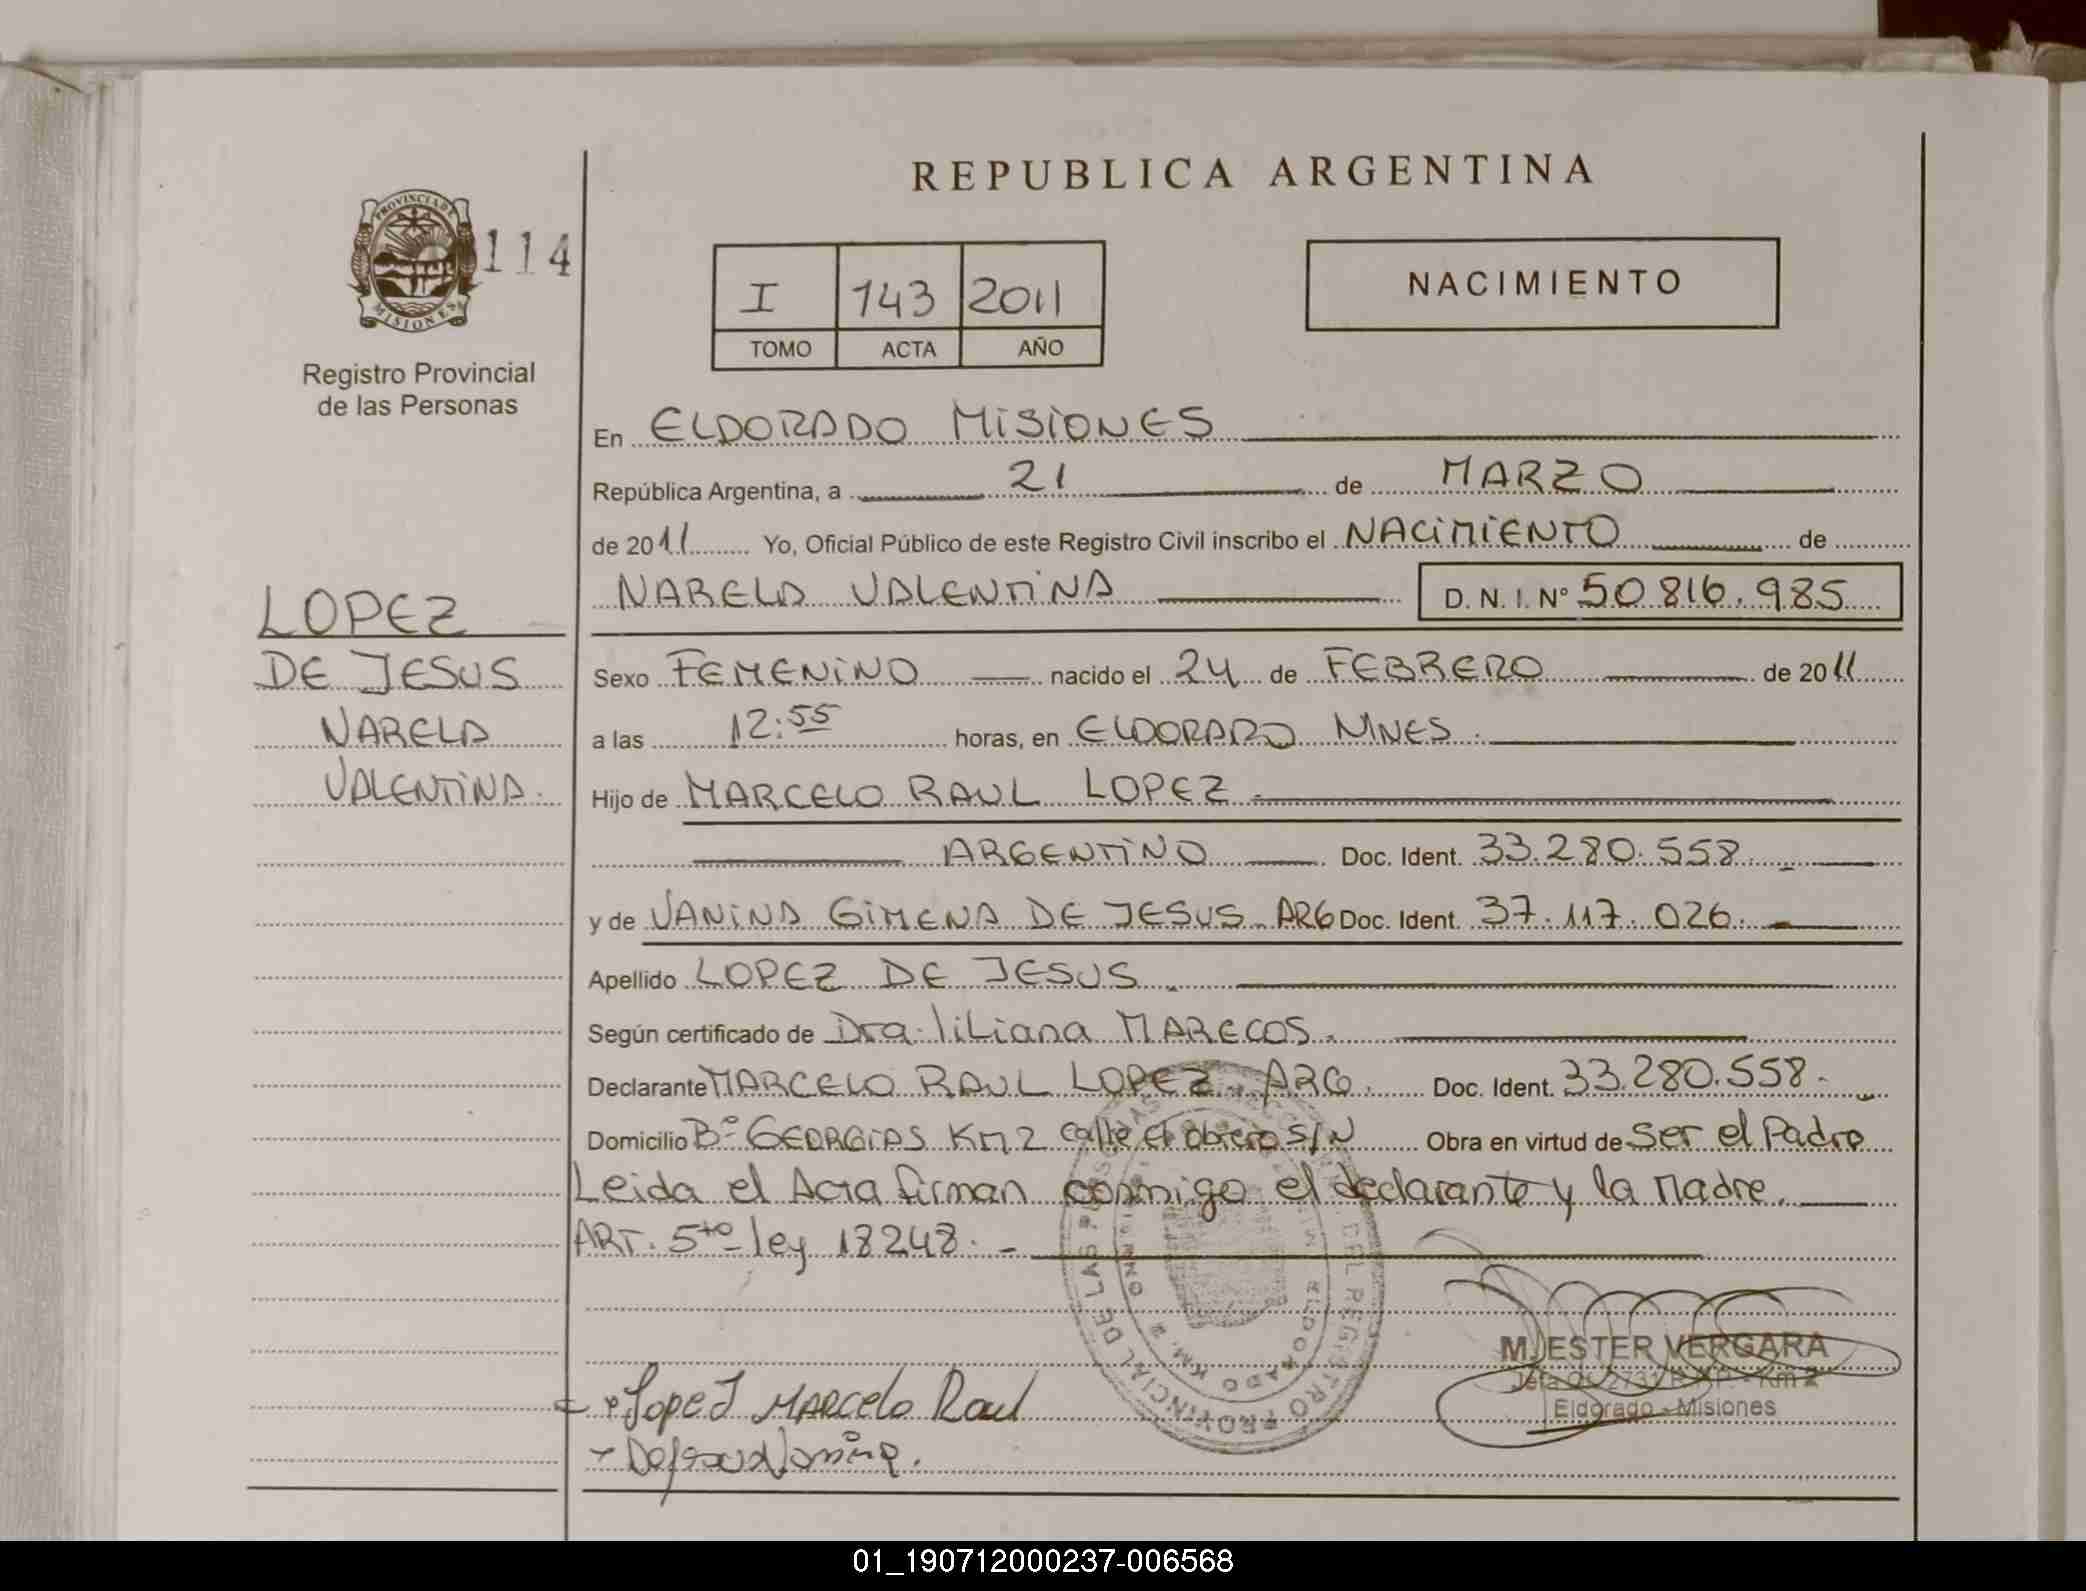 REPUBLICA ARGENTINA
PROVINCIA DE MISIONES
114
I 143 2011
TOMO ACTA AÑO
NACIMIENTO
Registro Provincial
de las Personas
LOPEZ
DE JESUS
NARELA
VALENTINA.
En ELDORADO MISIONES
República Argentina, a 21 de MARZO
de 2011 Yo, Oficial Público de este Registro Civil inscribo el NACIMIENTO de
NARELA VALENTINA D. N. I. Nº 50.816.985
Sexo FEMENINO nacido el 24 de FEBRERO de 2011
a las 12:55 horas, en ELDORADO MNES.
Hijo de MARCELO RAUL LOPEZ.
ARGENTINO Doc. Ident. 33.280.558.
y de VANINA GIMENA DE JESUS. ARG Doc. Ident. 37.117.026.
Apellido LOPEZ DE JESUS.
Según certificado de Dra. liliana MARECOS.
Declarante MARCELO RAUL LOPEZ ARG. Doc. Ident. 33.280.558.
Domicilio Bº GEORGIAS KM 2 calle el obrero S/N Obra en virtud de Ser el Padre
Leida el Acta firman conmigo el declarante y la Madre.
ART. 5to ley 18248.
M. ESTER VERGARA
Eldorado - Misiones
Lopez Marcelo Raul
REGISTRO PROVINCIAL DE LAS PERSONAS
ELDORADO KM. 2
01_190712000237-006568